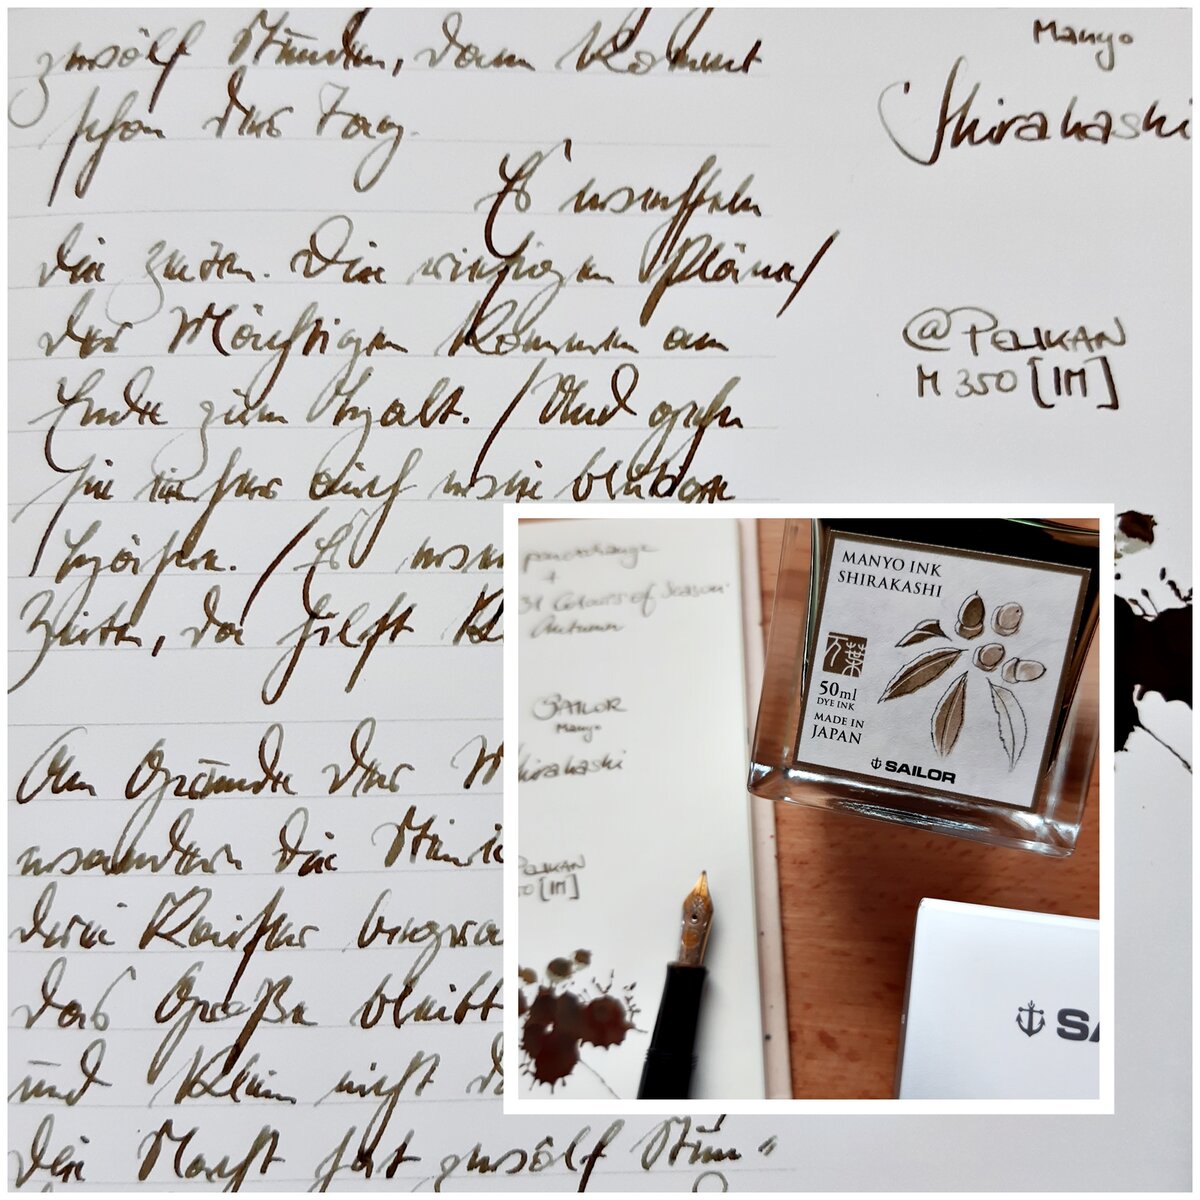 zwölf Stunden, dann kommt
schon der Tag.
Es wechseln
die Zeiten. Die riesigen Pläne/
der Mächtigen kommen am
Ende zum Halt. / Und gehn
sie einher auch wie blutige
Hähne. / Es we
Zeiten, da hilft K
Am Grunde der M
wandern die Stei
drei Kaiser begra
das Große bleibt
und klein nicht d
die Nacht hat zwölf Stun"
Manyo
Shirakashi
@PELIKAN
M 350 [IM]
penexchange
+
31 Colours of Season
Autumn
SAILOR
Manyo
hirakashi
PELIKAN
50 [IM]
MANYO INK
SHIRAKASHI
万葉
50ml
DYE INK
MADE IN
JAPAN
SAILOR
SA